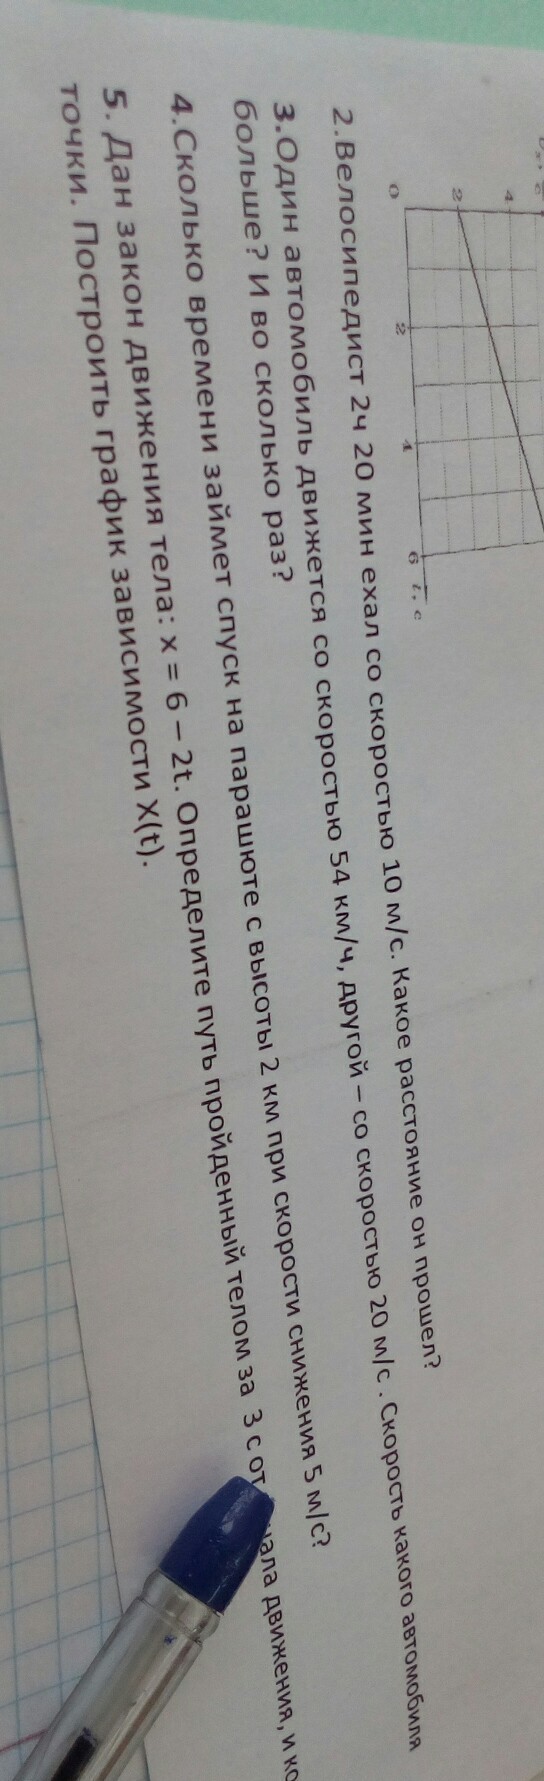 4
2
0
2
4
6
t, с
2.Велосипедист 2ч 20 мин ехал со скоростью 10 м/с. Какое расстояние он прошел?
3.Один автомобиль движется со скоростью 54 км/ч, другой – со скоростью 20 м/с . Скорость какого автомобиля
больше? И во сколько раз?
4.Сколько времени займет спуск на парашюте с высоты 2 км при скорости снижения 5 м/с?
5. Дан закон движения тела: x = 6 – 2t. Определите путь пройденный телом за 3 с от движения, и
точки. Построить график зависимости X(t).